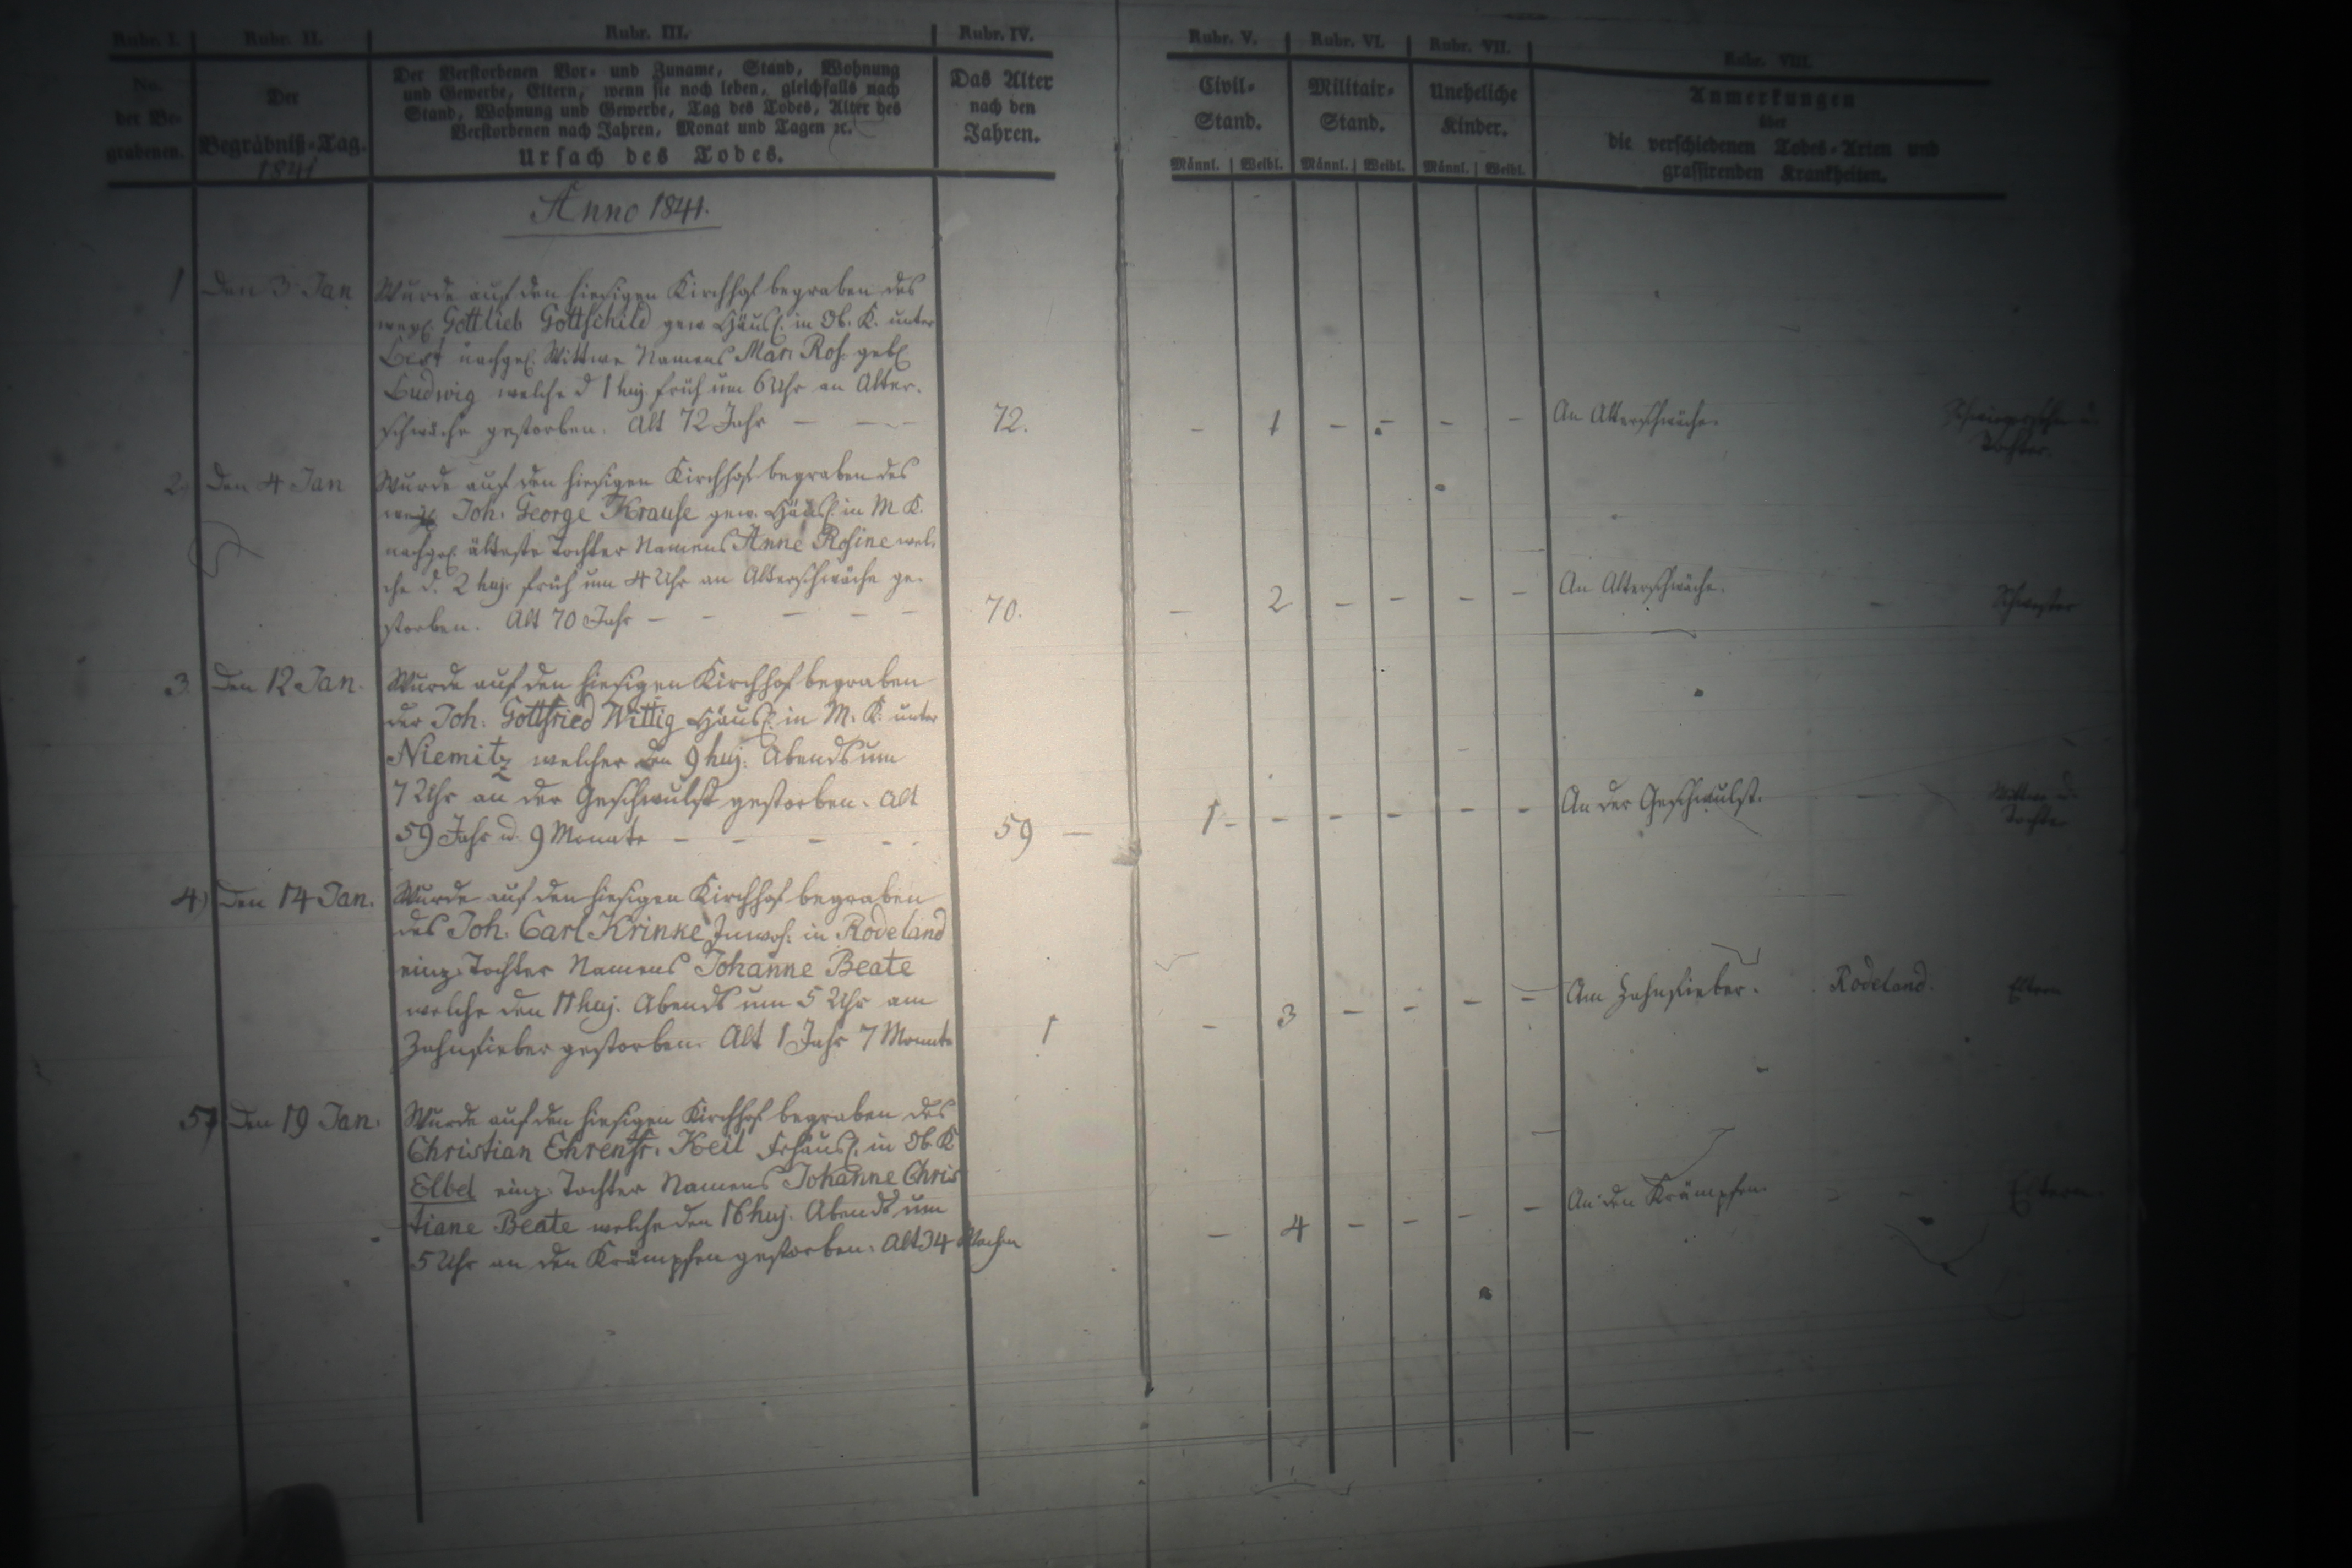 Rubr. I. Rubr. II. Rubr. III. Rubr. IV. Rubr. V. Rubr. VI. Rubr. VII. Rubr. VIII.
No.
der Be-
grabenen.
Der
Begräbniß-Tag.
1841
Der Verstorbenen Vor- und Zuname, Stand, Wohnung
und Gewerbe, Eltern, wenn sie noch leben, gleichfalls nach
Stand, Wohnung und Gewerbe, Tag des Todes, Alter des
Verstorbenen nach Jahren, Monat und Tagen ꝛc.
Ursach des Todes.
Das Alter
nach den
Jahren.
Civil-
Stand.
Männl. Weibl.
Militair-
Stand.
Männl. Weibl.
Uneheliche
Kinder.
Männl. Weibl.
Anmerkungen
über
die verschiedenen Todes-Arten und
grassirenden Krankheiten.
Anno 1841.
1 Den 3 Jan
Wurde auf den hiesigen Kirchhof begraben des
weyl. Gottlieb Gottschild gew Häusl. in Ob. K. unter
nachgel. Wittwe Namens Mar. Ros. gebl
Ludwig welche d 1 huj. früh um 6 Uhr an Alter-
schwäche gestorben. Alt 72 Jahr – – –
72. – 1 – – – – An Alterschwäche.
Tochter.
2 Den 4 Jan
Wurde auf den hiesigen Kirchhof begraben des
weyl. Joh. George Krause gew. Häusl. in M K.
nachgel. älteste Tochter Namens Anne Rosine wel-
che d. 2 huj. früh um 4 Uhr an Alterschwäche ge-
storben. Alt 70 Jahr – – – – –
70. – 2 – – – – An Alterschwäche. – Schwester
3 Den 12 Jan.
Wurde auf den hiesigen Kirchhof begraben
der Joh. Gottfried Wittig Häusl. in M. K. unter
Niemitz welcher den 9 huj. Abends um
7 Uhr an der Geschwulst gestorben. Alt
59 Jahr u. 9 Monate – – – – –
59 – 1 – – – – – – An der Geschwulst. – Wittwe u.
Tochter
4) Den 14 Jan.
Wurde auf den hiesigen Kirchhof begraben
des Joh. Carl Krinke Inwoh. in Rodeland
einz. Tochter Namens Johanne Beate
welche den 11 huj. Abends um 5 Uhr am
Zahnfieber gestorben. Alt 1 Jahr 7 Monate
1 – 3 – – – – Am Zahnfieber. Rodeland. Eltern
5) Den 19 Jan.
Wurde auf den hiesigen Kirchhof begraben des
Christian Ehrenfr. Keil Frhäusl. in Ob. K
Elbel einz. Tochter Namens Johanne Chris
tiane Beate welche den 16 huj. Abends um
5 Uhr an den Krämpfen gestorben. Alt 34 Wochen
– 4 – – – – An den Krämpfen. – Eltern.